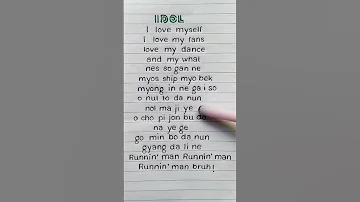 IDOL
I love myself
I love my fans
love my dance
and my what
nes so gan ne
myos ship myo bek
myong in ne ga i so
o nul to da nun
nol ma ji ye
o cho pi jon bu da
na ye ge
go min bo da nun
gyang da li ne
Runnin' man Runnin' man
Runnin' man bruh!